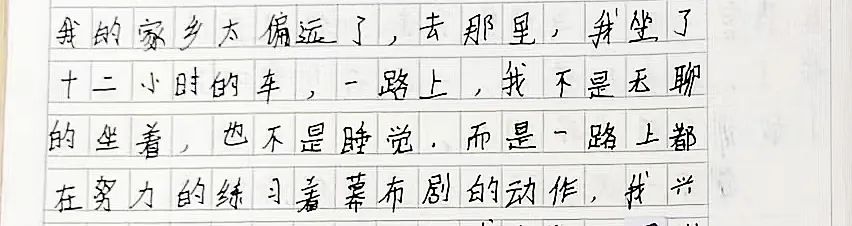 我的家乡太偏远了，去那里，我坐了
十二小时的车，一路上，我不是无聊
的坐着，也不是睡觉.而是一路上都
在努力的练习着幕布剧的动作，我兴